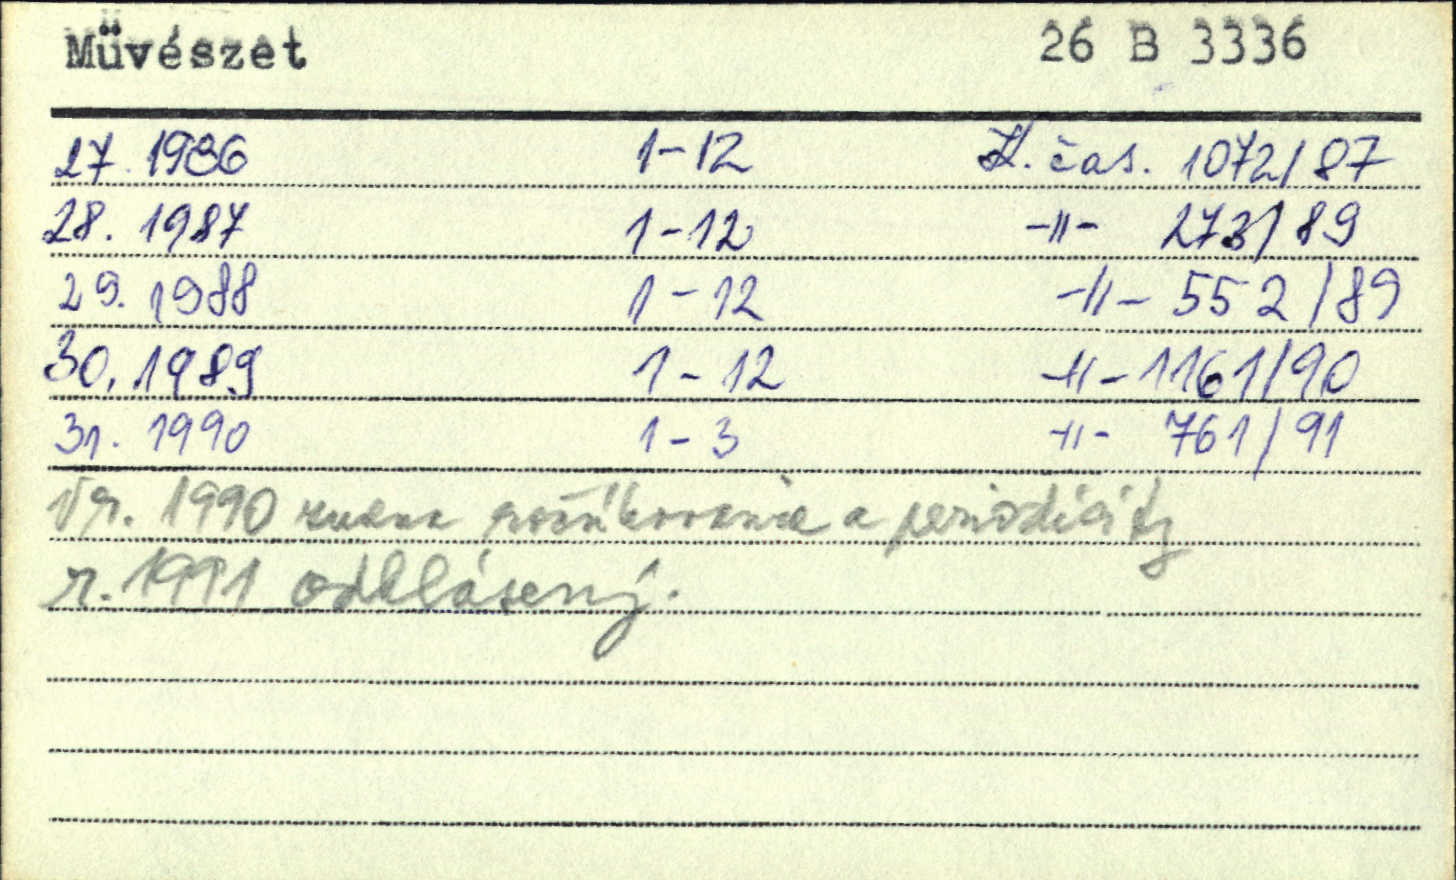 Müvészet 26 B 3336
27. 1986 1-12 Z. čas. 1072/87
28. 1987 1-12 -//- 273/89
29. 1988 1-12 -//- 552/89
30. 1989 1-12 -//- 1161/90
31. 1990 1-3 -//- 761/91
V r. 1990 zmena ročníkovania a periodicity
r. 1991 odhlásený.